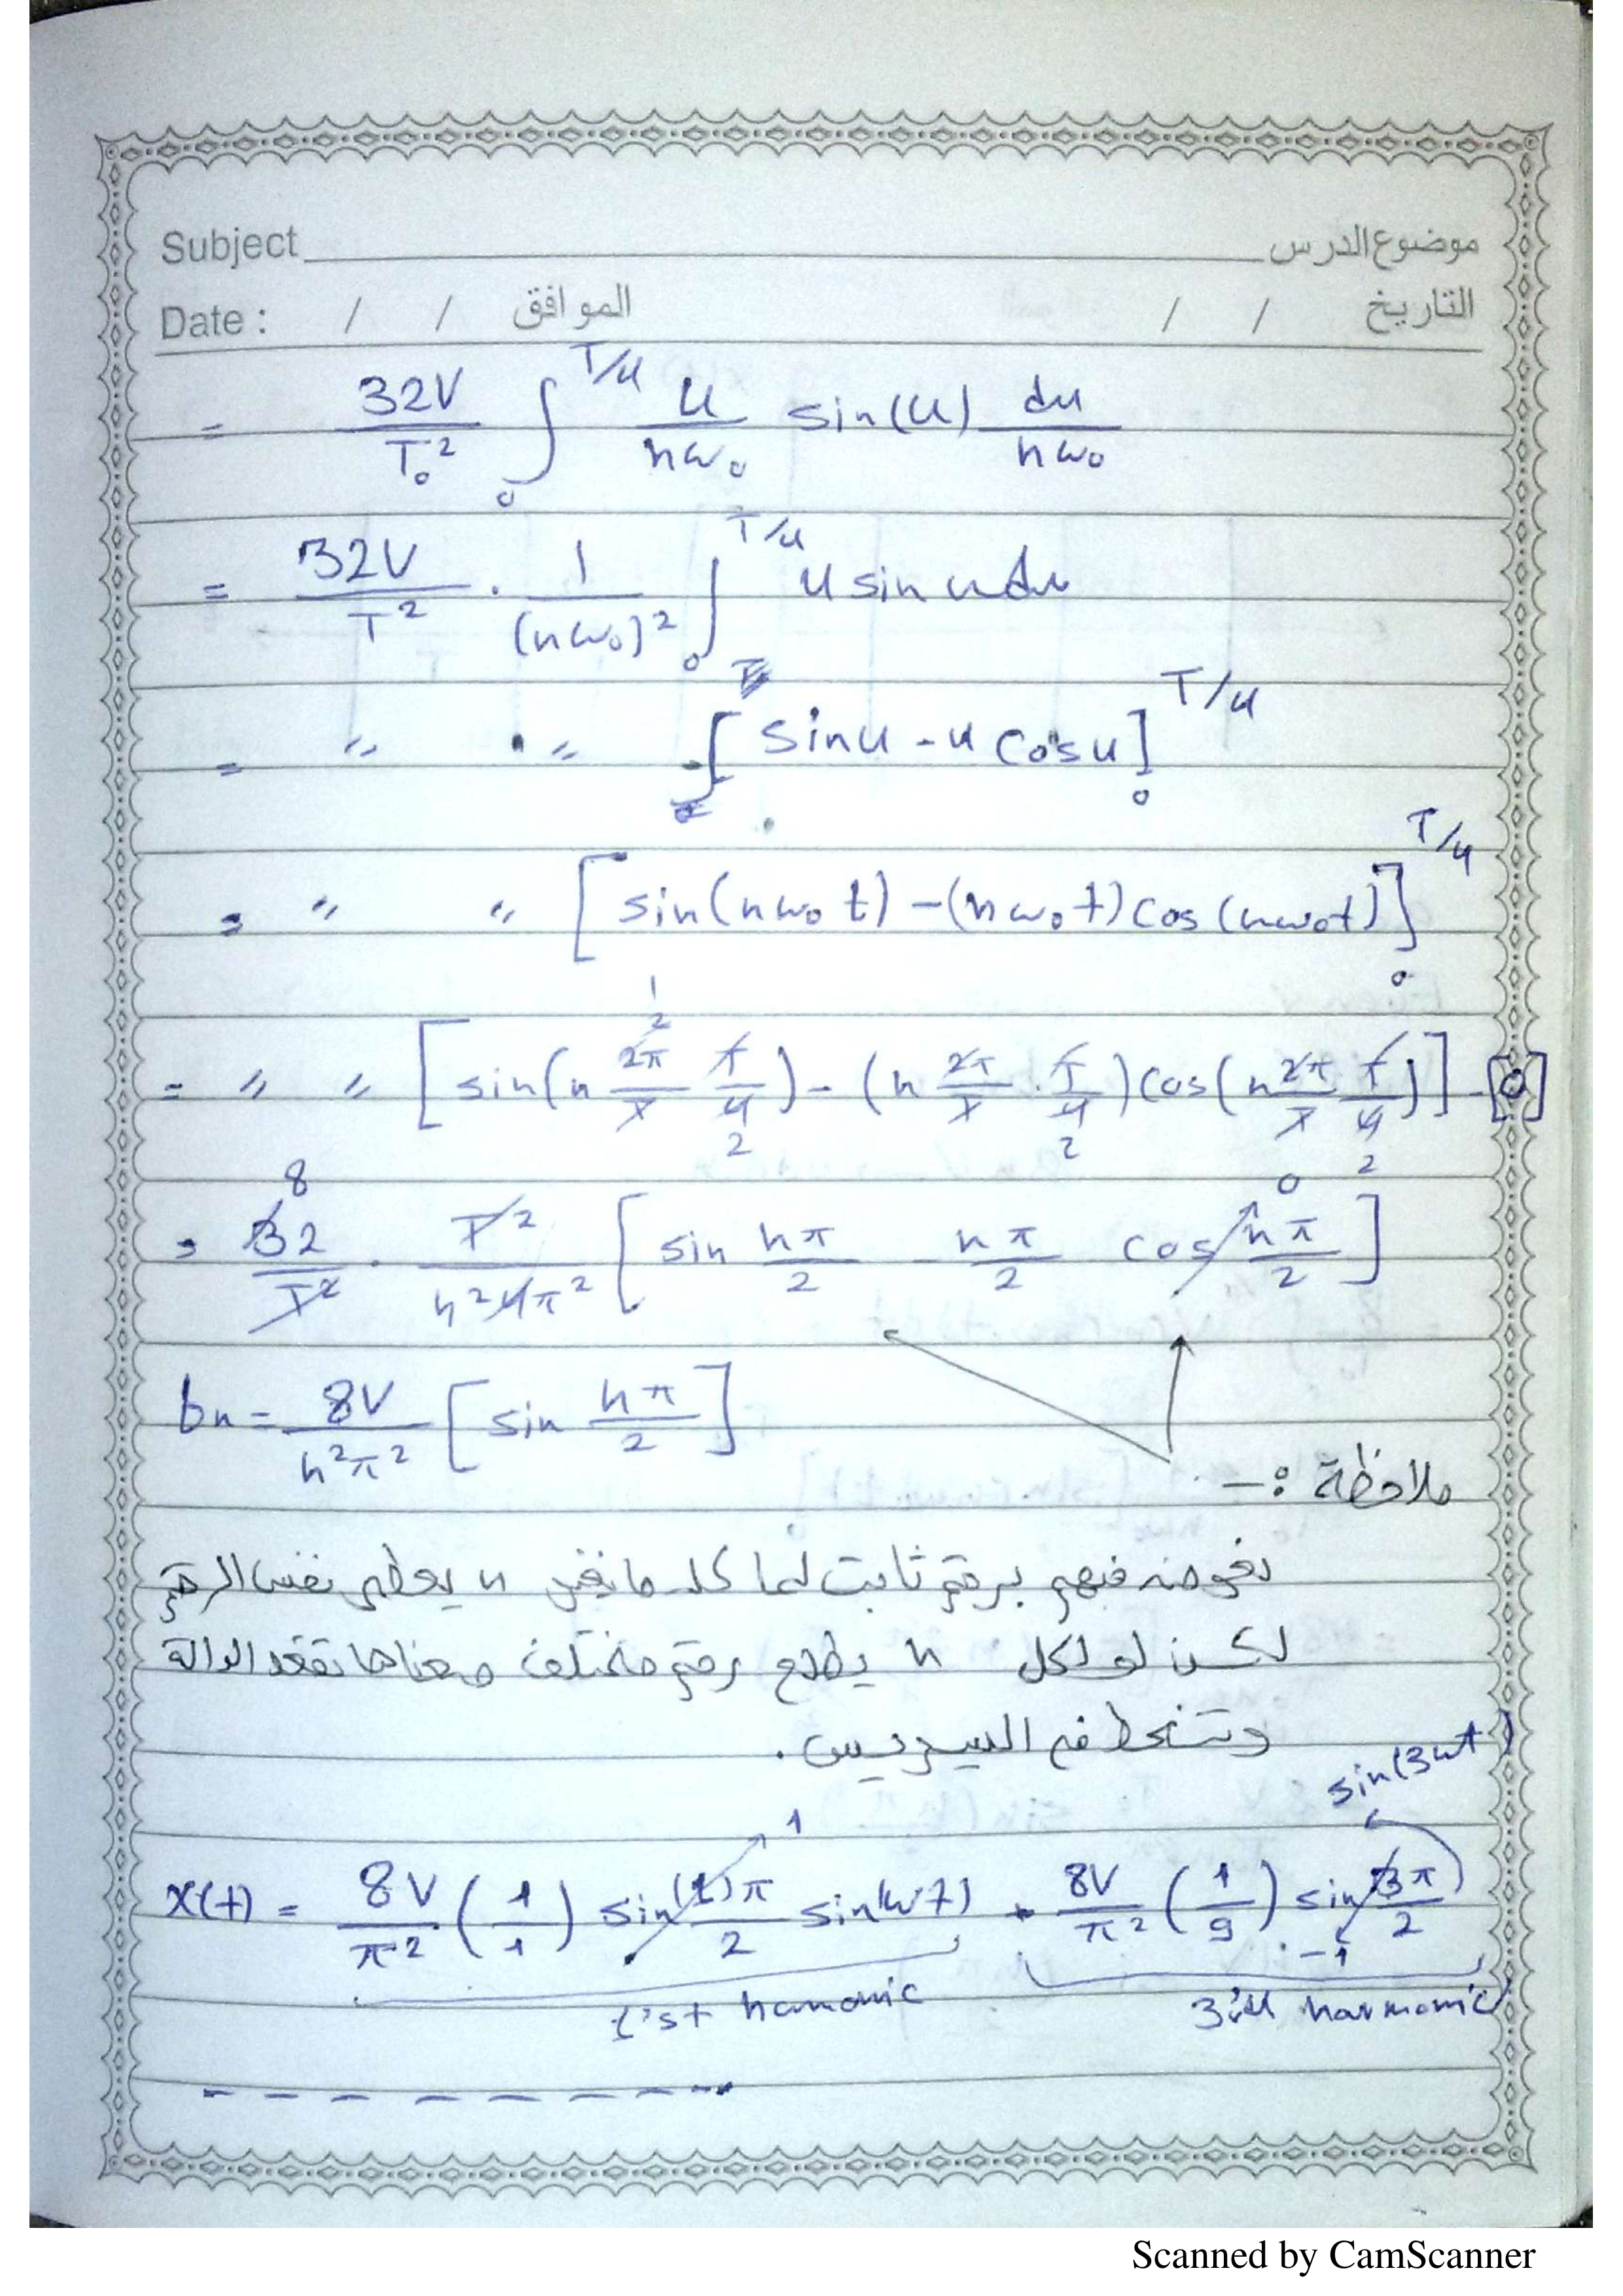 Subject موضوع الدرس
Date : / / الموافق / / التاريخ
= 32V/T₀² ∫₀^(T/4) u/(nω₀) sin(u) du/(nω₀)
= 32V/T² · 1/(nω₀)² ∫₀^(T/4) u sin u du
= " · " [sin u - u cos u]₀^(T/4)
= " " [sin(nω₀t) - (nω₀t) cos(nω₀t)]₀^(T/4)
= " " [sin(n 2π/T T/4) - (n 2π/T · T/4) cos(n 2π/T T/4)] - [0]
= 32/T² · T²/(n²4π²) [sin nπ/2 - nπ/2 cos nπ/2]
bn = 8V/(n²π²) [sin nπ/2]
ملاحظة :-
نعوضه فيهم برقم ثابت لما كل ما نغير n يعطي نفس الرقم
لكن لو لكل n يطلع رقم مختلف معناها تقعد الدالة
وتنحط في السيريس.
sin(3ωt)
x(t) = 8V/π² (1/1) sin (1)π/2 sin(ωt) + 8V/π² (1/9) sin 3π/2
1'st harmonic 3'ed harmonic